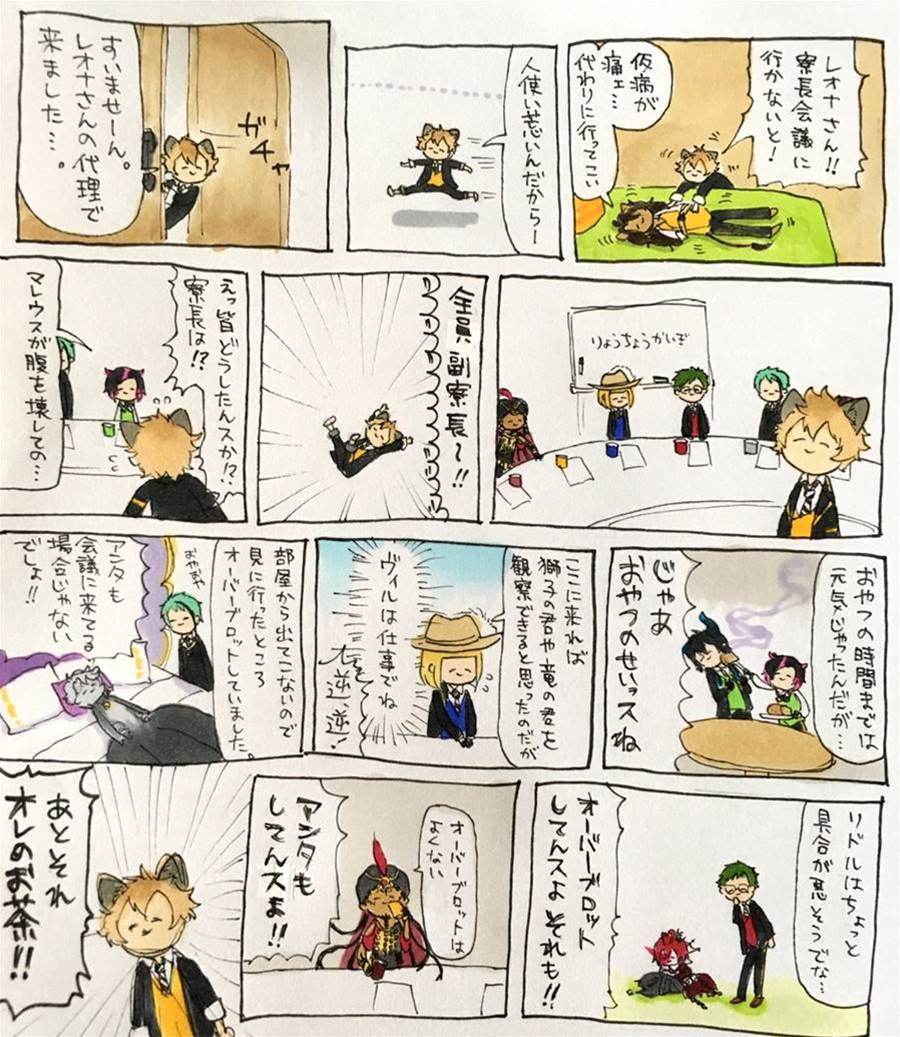 レオナさん!!
寮長会議に
行かないと!
仮病が
痛ェ…
代わりに行ってこい
人使い荒いんだから〜
ガチャ
すいませーん。
レオナさんの代理で
来ました…。
りょうちょうかいぎ
全員、副寮長〜!!
えっ皆どうしたんスか!?
寮長は!?
マレウスが腹を壊しての…
おやつの時間までは
元気じゃったんだが…
じゃあ
おやつのせいッスね
ここに来れば
獅子の君や竜の君を
観察できると思ったのだが
ヴィルは仕事でね
逆逆!
部屋から出てこないので
見に行ったところ
オーバーブロットしていました。
おやすや
アンタも
会議に来てる
場合じゃない
でしょ!!
リドルはちょっと
具合が悪そうでな…
オーバーブロット
してんスよそれも!!
オーバーブロットは
よくない
アンタも
してんスよ!!
あとそれ
オレのお茶!!